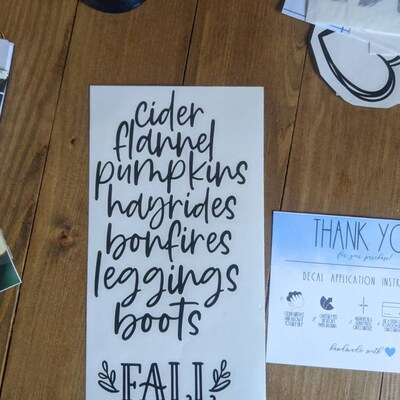 cider
flannel
pumpkins
hayrides
bonfires
leggings
boots
FALL
THANK YO
for your purchase!
DECAL APPLICATION INSTR
handmade with